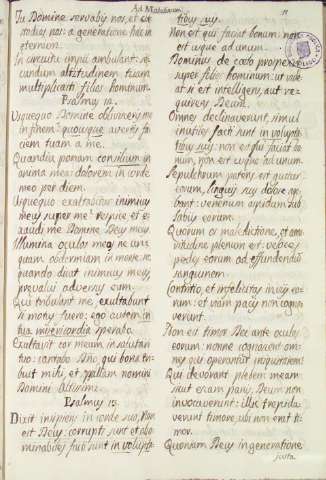 Ad Matutinum.
11
Tu Domine servabis nos, et cu-
stodies nos: a generatione hac in
æternum.
In circuitu impii ambulant: se-
cundum altitudinem tuam
multiplicasti filios hominum.
Psalmus 12.
Usquequo Domine oblivisceris me
in finem? quousque avertis fa-
ciem tuam a me.
Quandiu ponam consilium in
anima mea: dolorem in corde
meo per diem.
Usquequo exaltabitur inimicus
meus super me? respice, et e-
xaudi me Domine Deus meus.
Illumina oculos meos ne un-
quam obdormiam in morte: ne
quando dicat inimicus meus,
prevalui adversus eum.
Qui tribulant me, exultabunt
si motus fuero: ego autem in
tua misericordia speravi.
Exultavit cor meum in salutari
tuo: cantabo Dño. qui bona tri-
buit mihi, et psallam nomini
Domini Altissimi.
Psalmus 13.
Dixit insipiens in corde suo, Non
est Deus: corrupti sunt et abo-
minabiles facti sunt in volupta-
tibus suis.
Non est qui faciat bonum: non
est usque ad unum.
Dominus de cœlo prospexit
super filios hominum: ut vide-
at si est intelligens, aut re-
quirens Deum.
Omnes declinaverunt, simul
inutiles facti sunt in volupta-
tibus suis: non est qui faciat bo-
num, non est usque ad unum.
Sepulchrum patens est guttur
eorum, linguis suis dolose age-
bant: venenum aspidum sub
labiis eorum.
Quorum os maledictione, et ama-
ritudine plenum est: veloces
pedes eorum ad effundendum
sanguinem.
Contritio, et infelicitas in viis eo-
rum: et viam pacis non cogno-
verunt.
Non est timor Dei ante oculos
eorum: nonne cognoscent om-
nes qui operantur iniquitatem?
Qui devorant plebem meam
sicut escam panis, Deum non
invocaverunt: illic trepida-
verunt timore, ubi non erat ti-
mor.
Quoniam Deus in generatione
justa